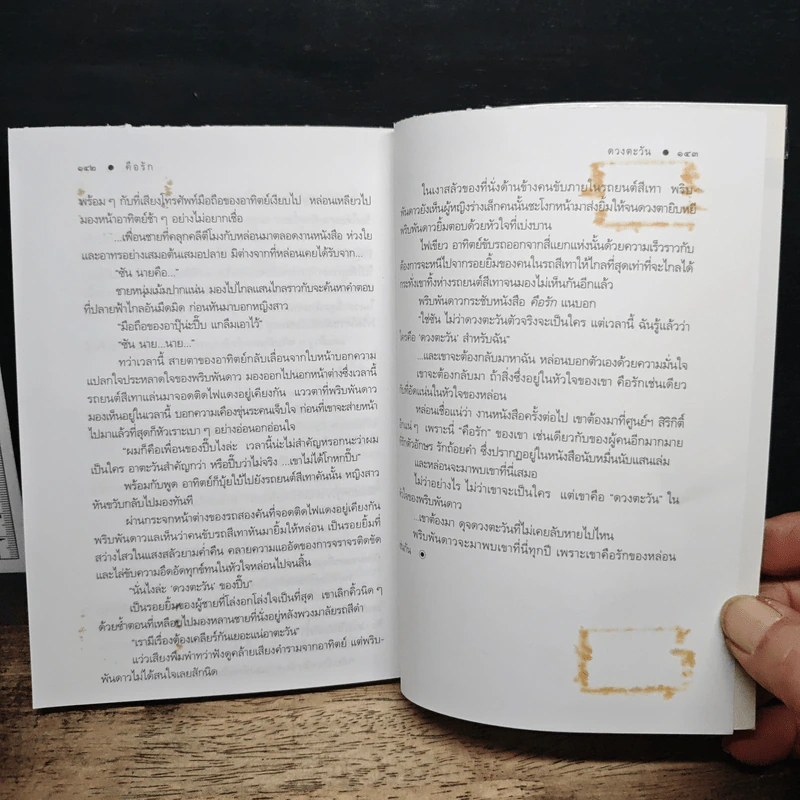 ๑๔๒ ● คือรัก
พร้อม ๆ กับที่เสียงโทรศัพท์มือถือของอาทิตย์เงียบไป หล่อนเหลียวไป
มองหน้าอาทิตย์ช้า ๆ อย่างไม่อยากเชื่อ
...เพื่อนชายที่คลุกคลีตีโมงกับหล่อนมาตลอดงานหนังสือ ห่วงใย
และอาทรอย่างเสมอต้นเสมอปลาย มิต่างจากที่หล่อนเคยได้รับจาก...
“ซัน นายคือ...”
ชายหนุ่มเม้มปากแน่น มองไปไกลแสนไกลราวกับจะค้นหาคำตอบ
ที่ปลายฟ้าไกลอันมืดมิด ก่อนหันมาบอกหญิงสาว
“มือถือของอาปุ๊น่ะปิ๊บ แกลืมเอาไว้”
“ซัน นาย...นาย...”
ทว่าเวลานี้ สายตาของอาทิตย์กลับเลื่อนจากใบหน้าบอกความ
แปลกใจประหลาดใจของพริบพันดาว มองออกไปนอกหน้าต่างซึ่งเวลานี้
รถยนต์สีเทาแล่นมาจอดติดไฟแดงอยู่เคียงกัน แววตาที่พริบพันดาว
มองเห็นอยู่ในเวลานี้ บอกความเคืองขุ่นระคนเจ็บใจ ก่อนที่เขาจะส่ายหน้า
ไปมาแล้วที่สุดก็หัวเราะเบา ๆ อย่างอ่อนอกอ่อนใจ
“ผมก็คือเพื่อนของปิ๊บไงล่ะ เวลานี้น่ะไม่สำคัญหรอกนะว่าผม
เป็นใคร อาตะวันสำคัญกว่า หรือปิ๊บว่าไม่จริง ...เขาไม่ได้โกหกปิ๊บ”
พร้อมกับพูด อาทิตย์ก็บุ้ยใบ้ไปยังรถยนต์สีเทาคันนั้น หญิงสาว
หันขวับกลับไปมองทันที
ผ่านกระจกหน้าต่างของรถสองคันที่จอดติดไฟแดงอยู่เคียงกัน
พริบพันดาวแลเห็นว่าคนขับรถสีเทาหันมายิ้มให้หล่อน เป็นรอยยิ้มที่
สว่างไสวในแสงสลัวยามค่ำคืน คลายความแออัดของการจราจรติดขัด
และไล่ขับความอึดอัดทุกข์ทนในหัวใจหล่อนไปจนสิ้น
“นั่นไงล่ะ ‘ดวงตะวัน’ ของปิ๊บ”
เป็นรอยยิ้มของผู้ชายที่โล่งอกโล่งใจเป็นที่สุด เขาเลิกคิ้วนิด ๆ
ด้วยซ้ำตอนที่เหลือบไปมองหลานชายที่นั่งอยู่หลังพวงมาลัยรถสีดำ
“เรามีเรื่องต้องเคลียร์กันเยอะแน่อาตะวัน”
แว่วเสียงพึมพำทว่าฟังดูคล้ายเสียงคำรามจากอาทิตย์ แต่พริบ-
พันดาวไม่ได้สนใจเลยสักนิด
ดวงตะวัน ● ๑๔๓
ในเงาสลัวของที่นั่งด้านข้างคนขับภายในรถยนต์สีเทา พริบ
พันดาวยังเห็นผู้หญิงร่างเล็กคนนั้นชะโงกหน้ามาส่งยิ้มให้จนดวงตายิบหยี
พริบพันดาวยิ้มตอบด้วยหัวใจที่เบ่งบาน
ไฟเขียว อาทิตย์ขับรถออกจากสี่แยกแห่งนั้นด้วยความเร็วราวกับ
ต้องการจะหนีไปจากรอยยิ้มของคนในรถสีเทาให้ไกลที่สุดเท่าที่จะไกลได้
กระทั่งเขาทิ้งห่างรถยนต์สีเทาจนมองไม่เห็นกันอีกแล้ว
พริบพันดาวกระชับหนังสือ คือรัก แนบอก
“ใช่ซัน ไม่ว่าดวงตะวันตัวจริงจะเป็นใคร แต่เวลานี้ ฉันรู้แล้วว่า
ใครคือ ‘ดวงตะวัน’ สำหรับฉัน”
...และเขาจะต้องกลับมาหาฉัน หล่อนบอกตัวเองด้วยความมั่นใจ
เขาจะต้องกลับมา ถ้าสิ่งซึ่งอยู่ในหัวใจของเขา คือรักเช่นเดียว
กับที่อัดแน่นในหัวใจของหล่อน
หล่อนเชื่อแน่ว่า งานหนังสือครั้งต่อไป เขาต้องมาที่ศูนย์ฯ สิริกิติ์
อีกแน่ ๆ เพราะนี่ “คือรัก” ของเขา เช่นเดียวกับของผู้คนอีกมากมาย
รักตัวอักษร รักถ้อยคำ ซึ่งปรากฏอยู่ในหนังสือนับหมื่นนับแสนเล่ม
และหล่อนจะมาพบเขาที่นี่เสมอ
ไม่ว่าอย่างไร ไม่ว่าเขาจะเป็นใคร แต่เขาคือ “ดวงตะวัน” ใน
หัวใจของพริบพันดาว
...เขาต้องมา ดุจดวงตะวันที่ไม่เคยลับหายไปไหน
พริบพันดาวจะมาพบเขาที่นี่ทุกปี เพราะเขาคือรักของหล่อน